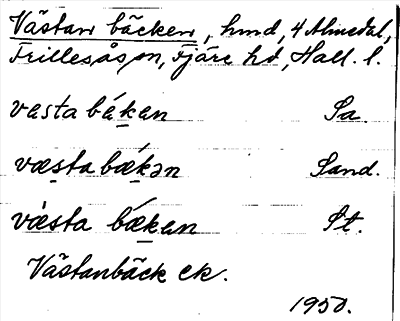 Västan bäcken, hmd, 4 Almedal,
Frillesås sn, Fjäre hd, Hall. l.
vesta békan Sa.
væsta bækən Sand.
væ̀sta bækən St.
Västanbäck ek.
1950.